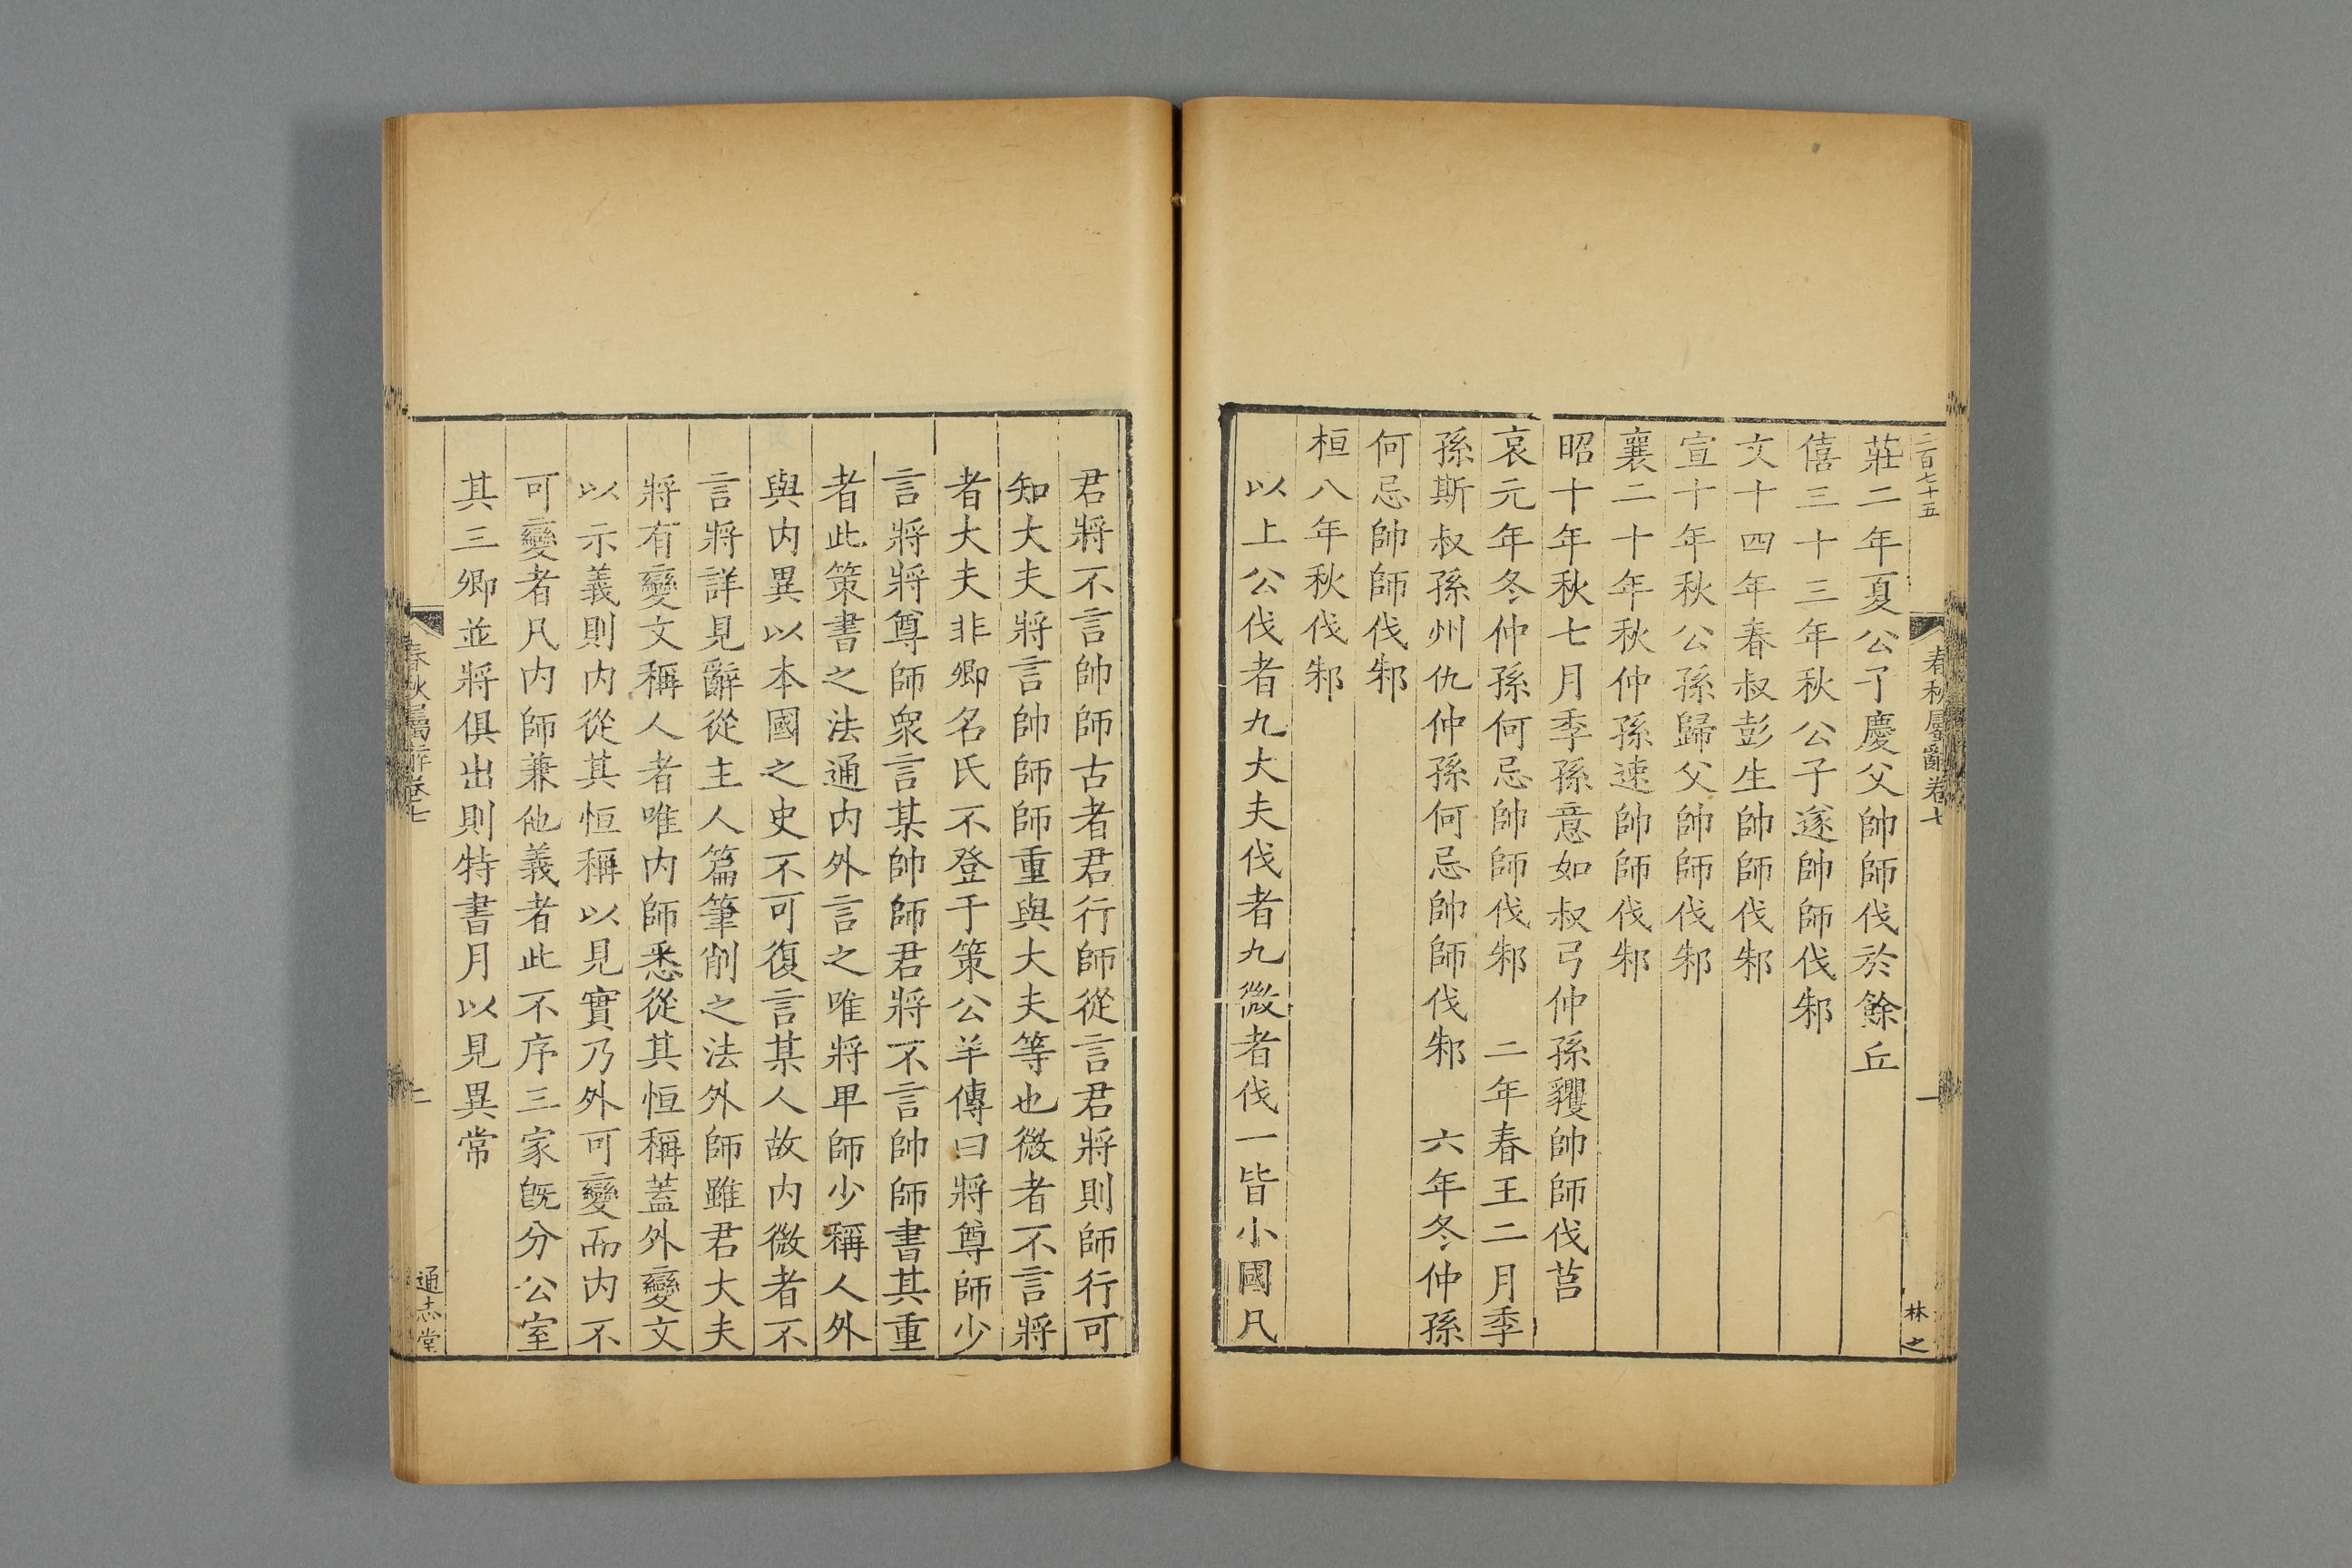 二百七十五
春秋屬辭卷七
一
林之
莊二年夏公子慶父帥師伐於餘丘
僖三十三年秋公子遂帥師伐邾
文十四年春叔彭生帥師伐邾
宣十年秋公孫歸父帥師伐邾
襄二十年秋仲孫速帥師伐邾
昭十年秋七月季孫意如叔弓仲孫貜帥師伐莒
哀元年冬仲孫何忌帥師伐邾 二年春王二月季
孫斯叔孫州仇仲孫何忌帥師伐邾 六年冬仲孫
何忌帥師伐邾
桓八年秋伐邾
以上公伐者九大夫伐者九微者伐一皆小國凡
君將不言帥師古者君行師從言君將則師行可
知大夫將言帥師師重與大夫等也微者不言將
者大夫非卿名氏不登于策公羊傳曰將尊師少
言將將尊師衆言某帥師君將不言帥師書其重
者此策書之法通内外言之唯將卑師少稱人外
與内異以本國之史不可復言某人故内微者不
言將詳見辭從主人篇筆削之法外師雖君大夫
將有變文稱人者唯内師悉從其恒稱蓋外變文
以示義則内從其恒稱以見實乃外可變而内不
可變者凡内師兼他義者此不序三家旣分公室
其三卿並將俱出則特書月以見異常
春秋屬辭卷七
二
通志堂